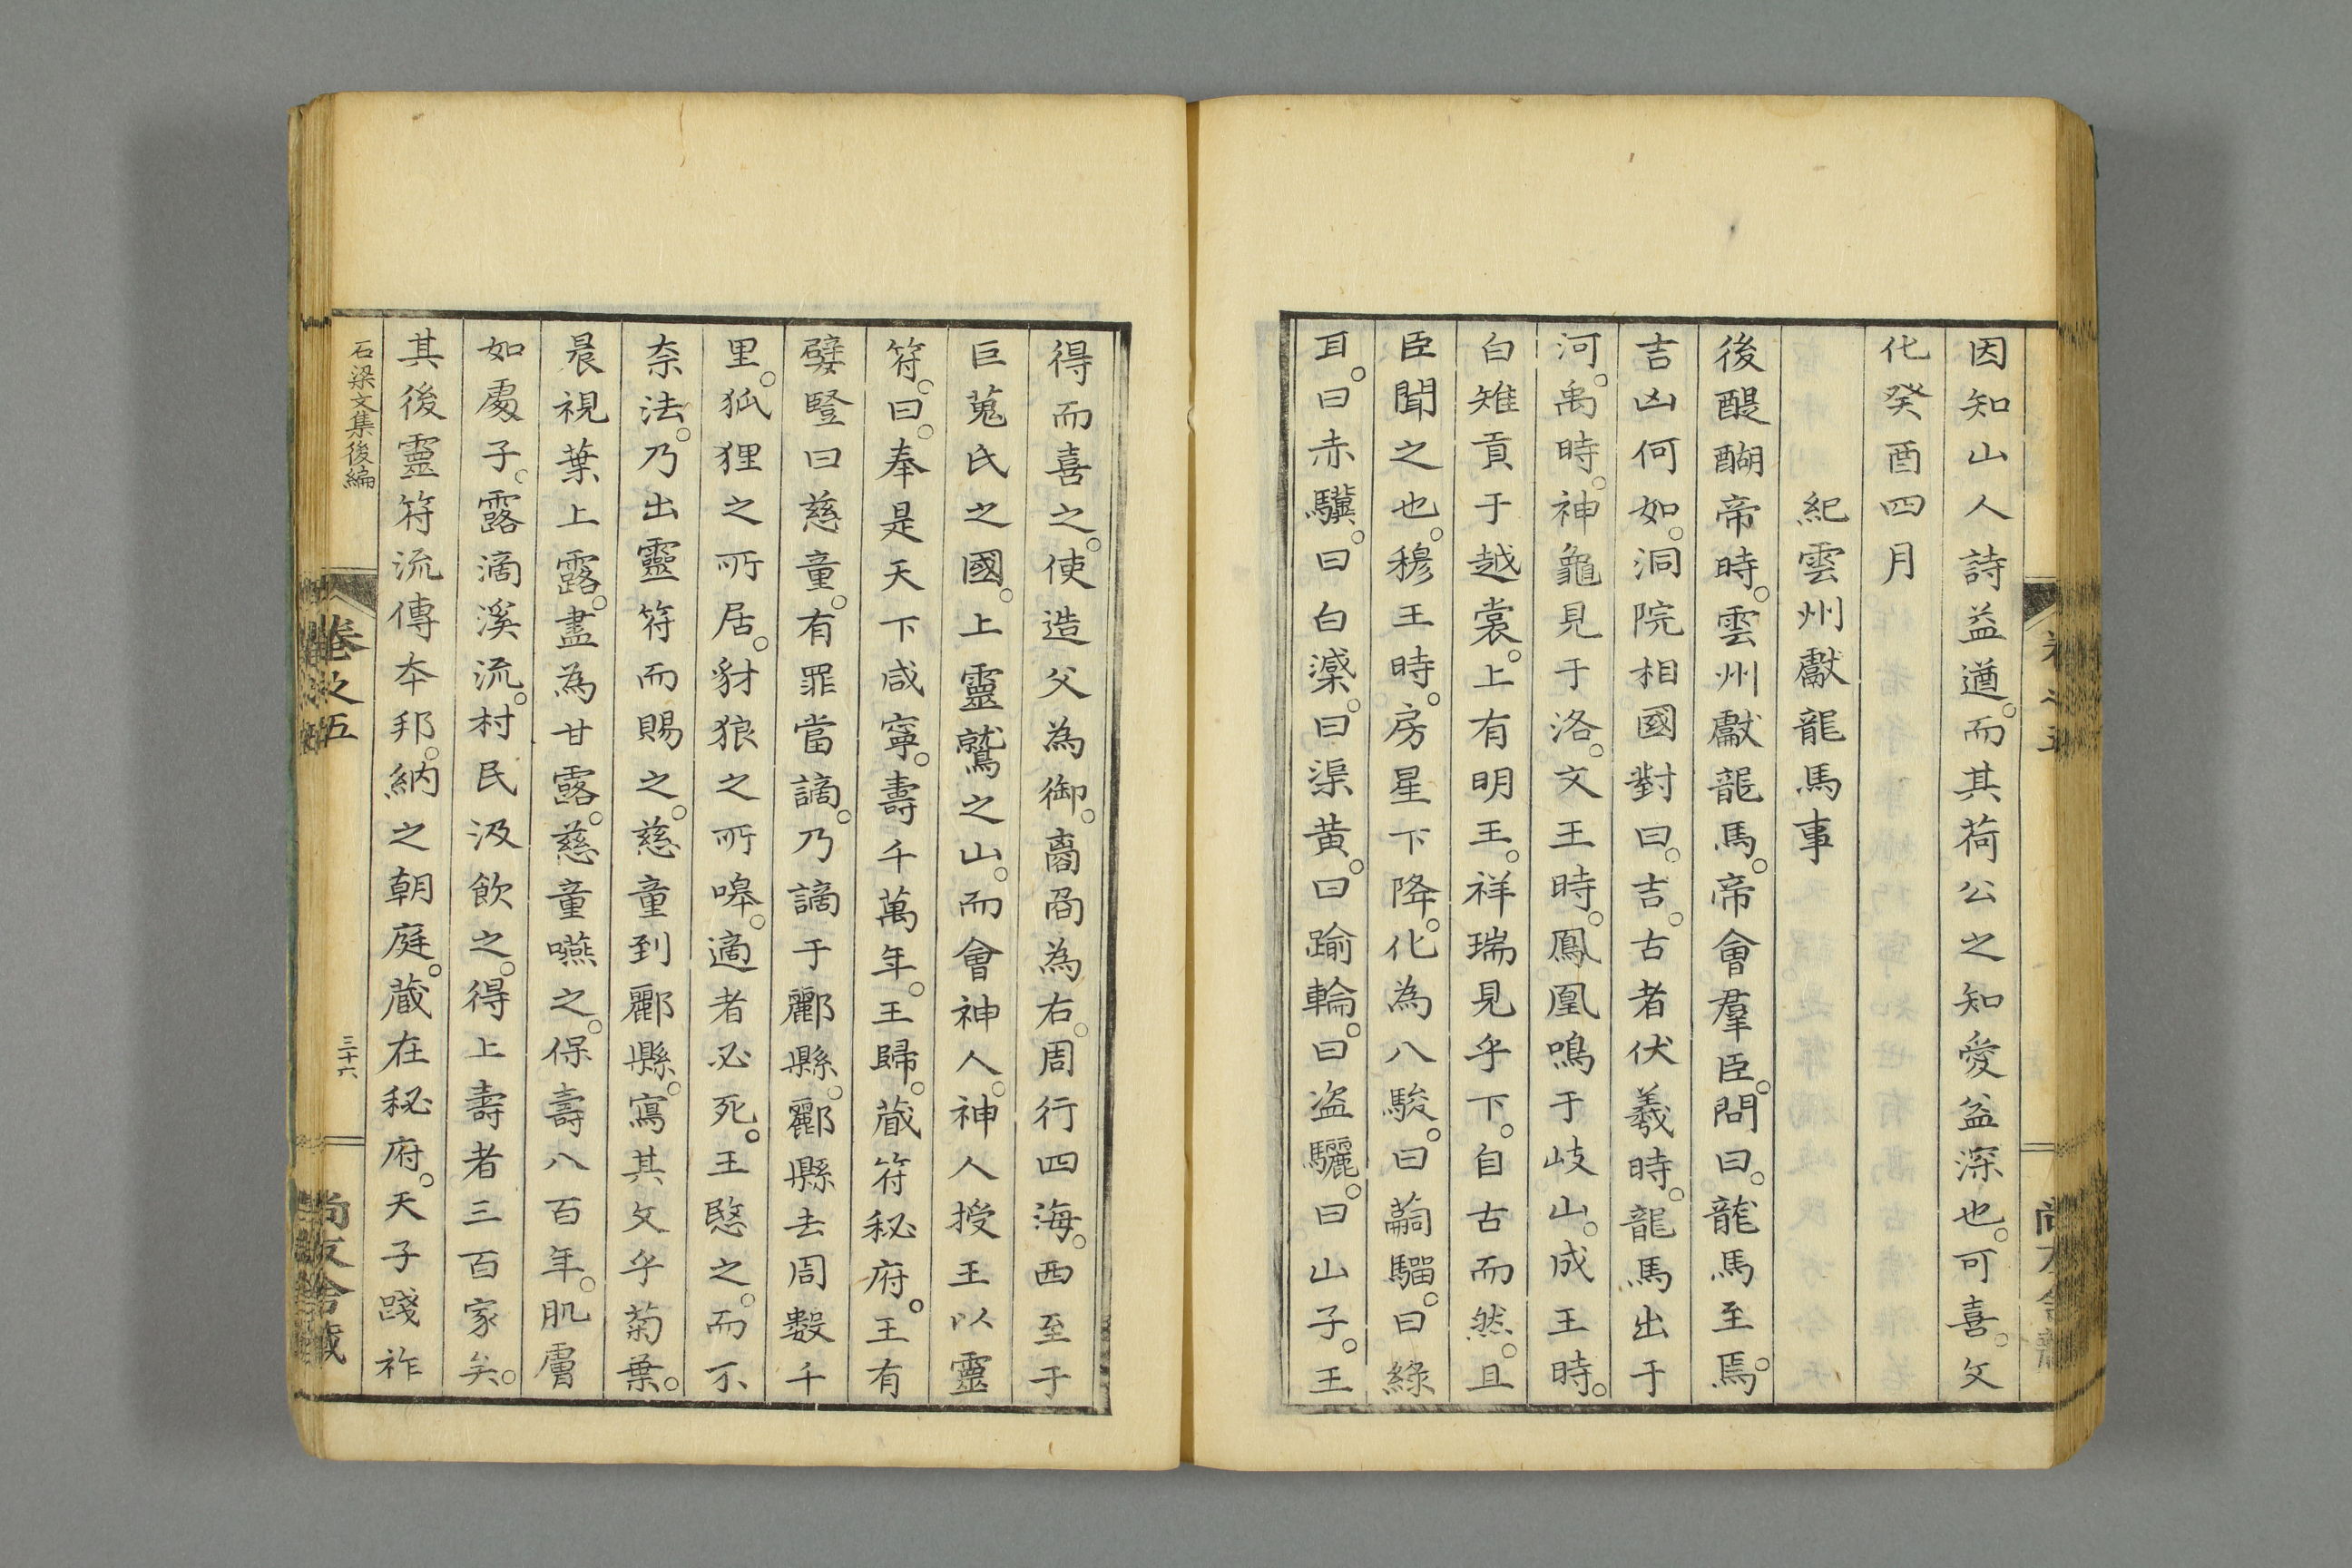 因知山人詩益遒。而其荷公之知愛益深也。可喜。文
化癸酉四月
紀雲州獻龍馬事
後醍醐帝時。雲州獻龍馬。帝會羣臣。問曰。龍馬至焉。
吉凶何如。洞院相國對曰。吉。古者伏羲時。龍馬出于
河。禹時。神龜見于洛。文王時。鳳凰鳴于岐山。成王時。
白雉貢于越裳。上有明王。祥瑞見乎下。自古而然。且
臣聞之也。穆王時。房星下降。化為八駿。曰驦騮。曰綠
耳。曰赤驥。曰白㶇。曰渠黄。曰踰輪。曰盗驪。曰山子。王
得而喜之。使造父為御。𧷤𠱠為右。周行四海。西至于
巨蒐氏之國。上靈鷲之山。而會神人。神人授王以靈
符。曰。奉是天下咸寧。壽千萬年。王歸。蔵符秘府。王有
嬖豎曰慈童。有罪當謫。乃謫于酈縣。酈縣去周數千
里。狐狸之所居。豺狼之所嘷。適者必死。王愍之。而不
奈法。乃出靈符而賜之。慈童到酈縣。寫其文乎菊葉。
晨視葉上露。盡為甘露。慈童嚥之。保壽八百年。肌膚
如處子。露滴溪流。村民汲飲之。得上壽者三百家矣。
其後靈符流傳本邦。納之朝庭。蔵在秘府。天子踐祚
石梁文集後編
卷之五
三十六
尚友舍藏